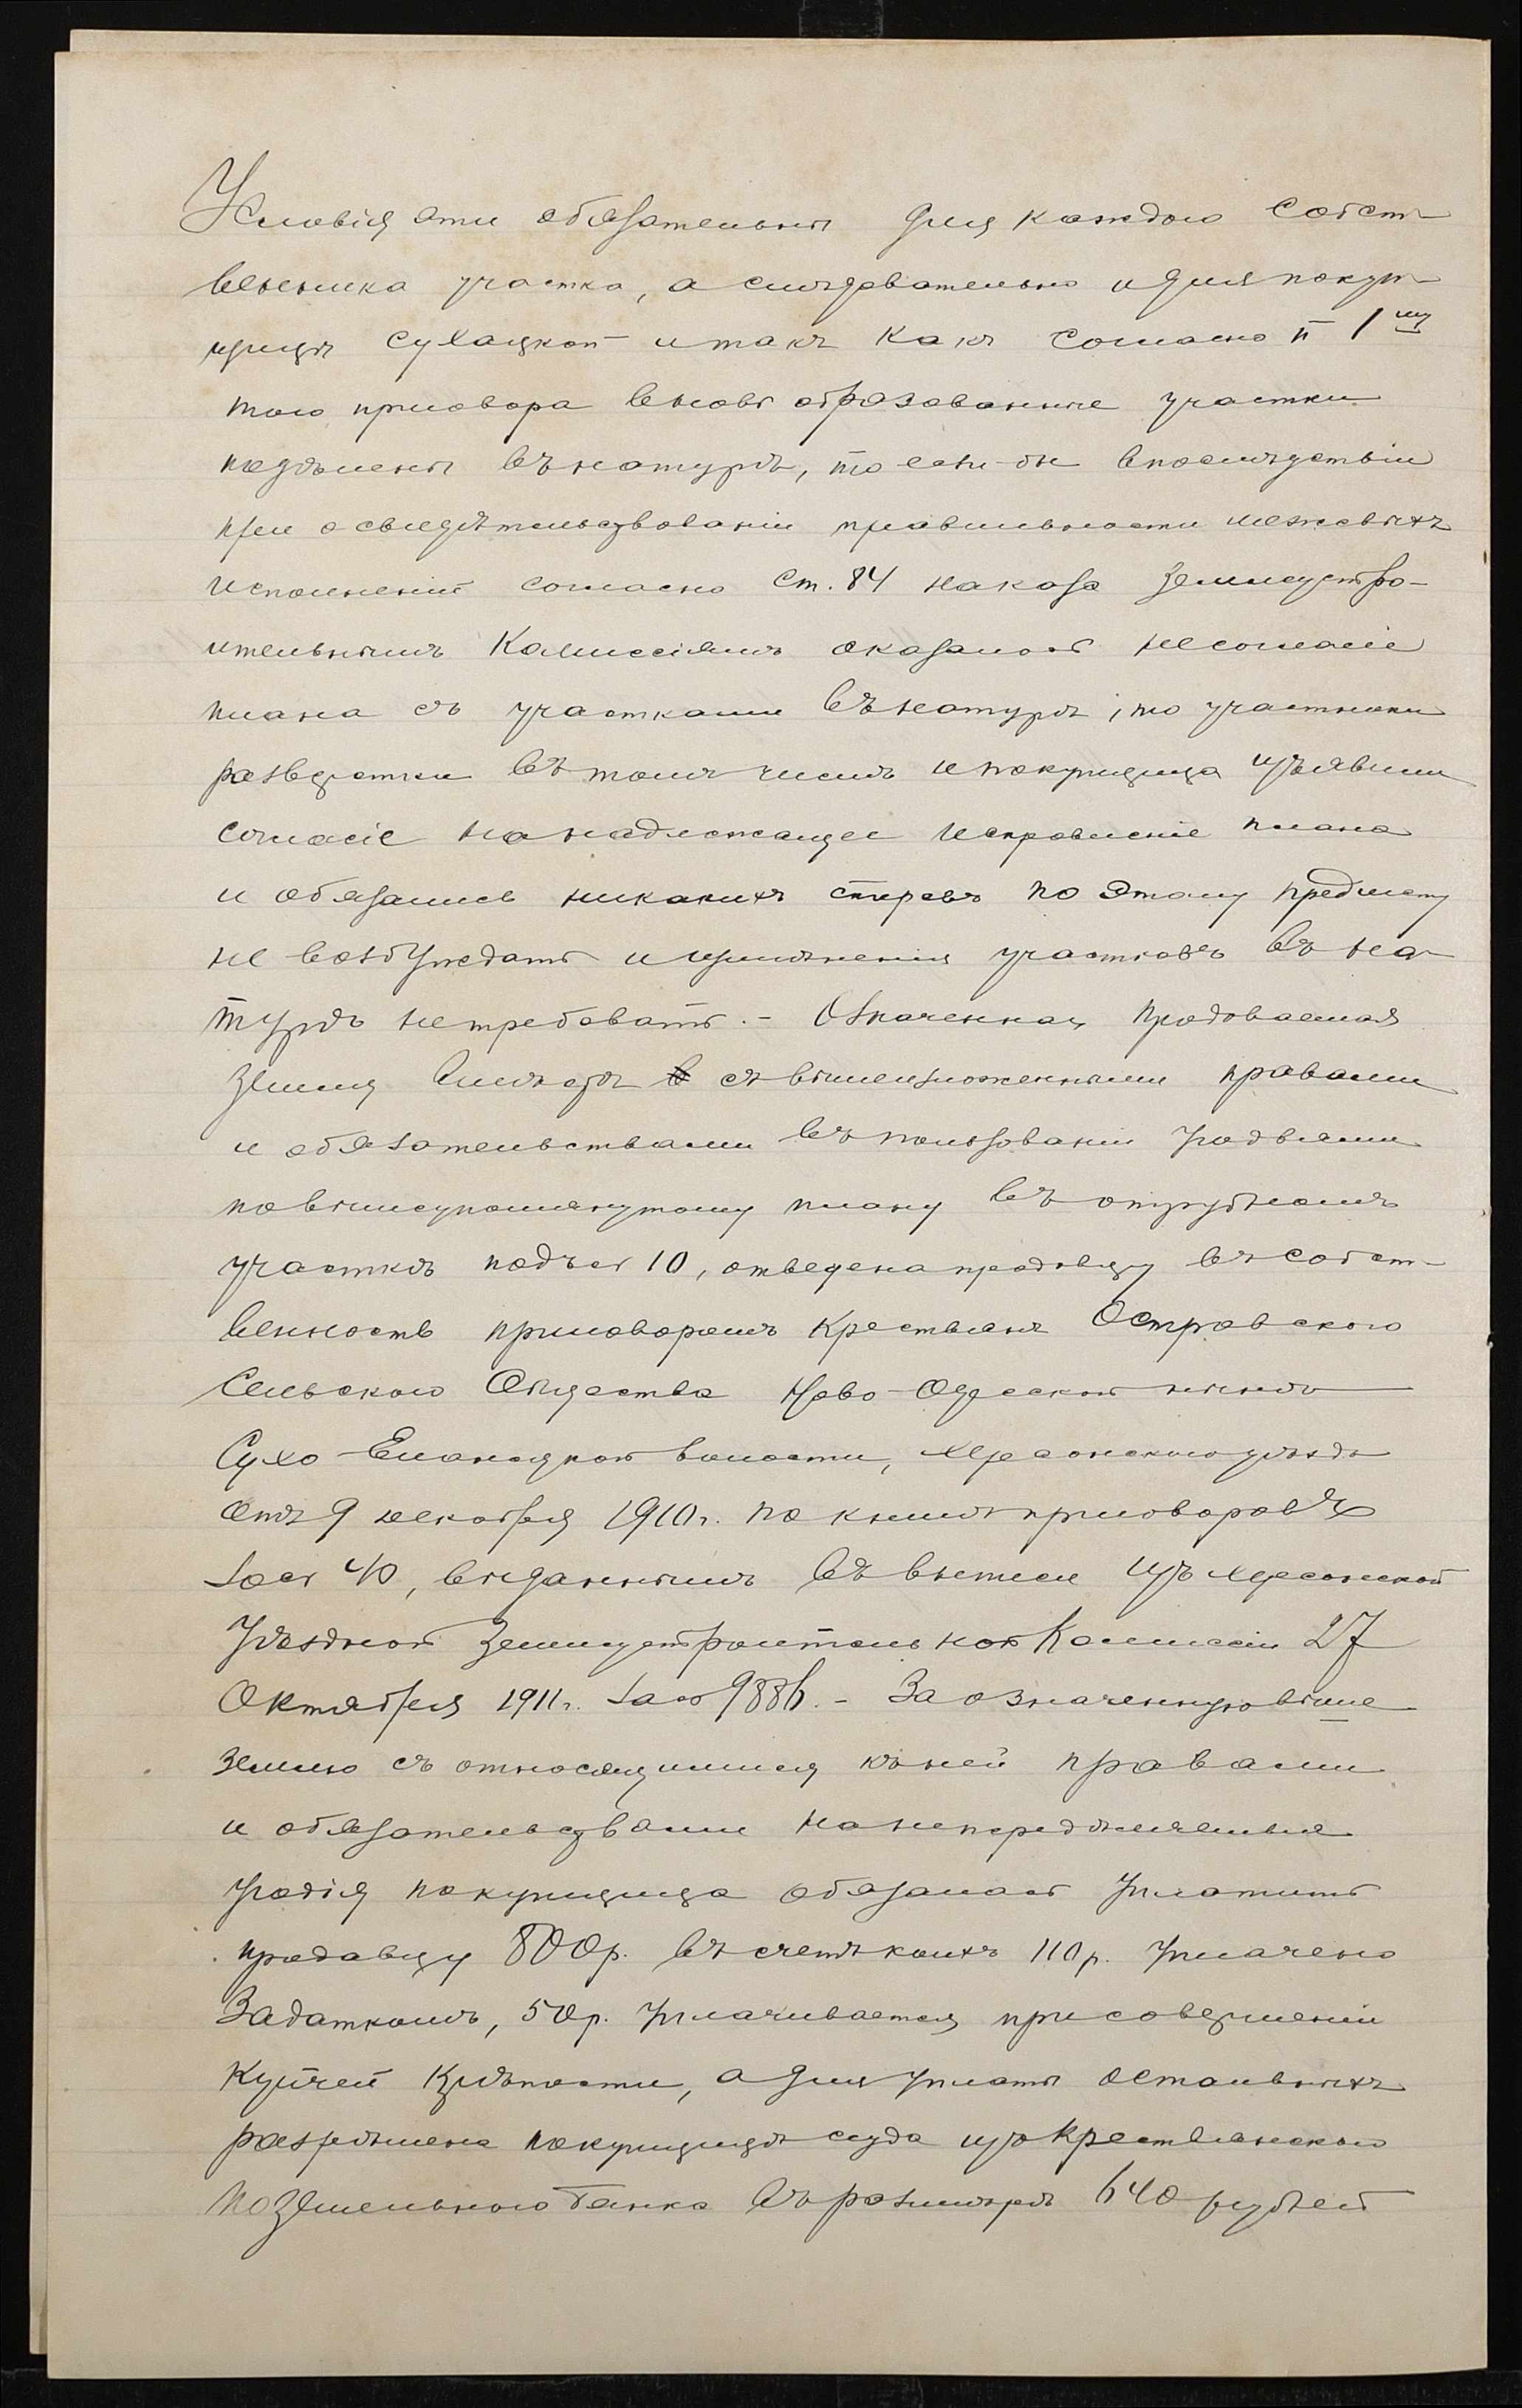 Условія эти обязательны для каждого собст-
венника участка, а слѣдовательно и для покуп-
щицы Сулацкой и такъ какъ согласно п 1му
того приговора вновь образованные участки
надѣлены въ натурѣ, то если-бы впослѣдствіи
при освидѣтельствованіи правильности межевыхъ
исполненій согласно ст. 84 наказа Землеустро-
ительнымъ Комиссіямъ оказалось несогласіе
плана съ участками въ натурѣ, то участники
разверстки въ томъ числѣ и покупщица изъявили
согласіе на надлежащее исправленіе плана
и обязались никакихъ споровъ по этому предмету
не возбуждать и измѣненія участковъ въ на-
турѣ не требовать. - Означенная продаваемая
земля вмѣстѣ съ вышеизложенными правами
и обязательствами въ пользованіи угодьями
по вышеупомянутому плану въ отрубномъ
участкѣ подъ № 10, отведена продавцу въ собст-
венность приговоромъ крестьянъ Островского
Сельскаго Общества Ново-Одесской нынѣ
Сухо-Еланецкой волости, Херсонскаго уѣзда
отъ 9 декабря 1910 г. по книгѣ приговоровъ
за № 40, выданнымъ въ выписи изъ Херсонской
Уѣздной Землеустроительной Комиссіи 27
Октября 1911 г. за № 9886. - За означенную выше
землю съ относящимися къ ней правами
и обязательствами на непередѣляемыя
угодія покупщица обязалась уплатить
продавцу 800 р. въ счетъ коихъ 110 р. уплачено
задаткомъ, 50 р. уплачивается при совершеніи
купчей крѣпости, а для уплаты остальныхъ
разрѣшена покупщицѣ ссуда изъ Крестьянскаго
Поземельного Банка въ размѣрѣ 640 рублей